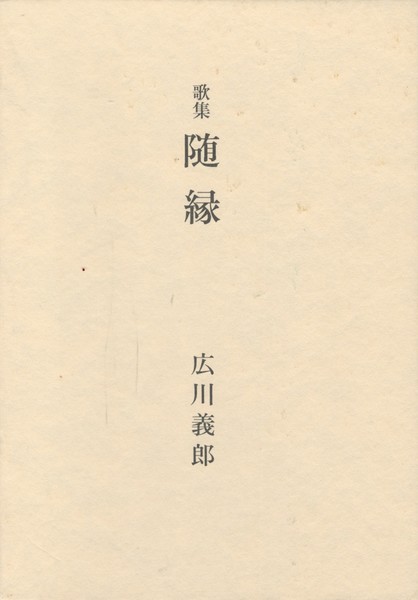 歌集
随縁
広川義郎